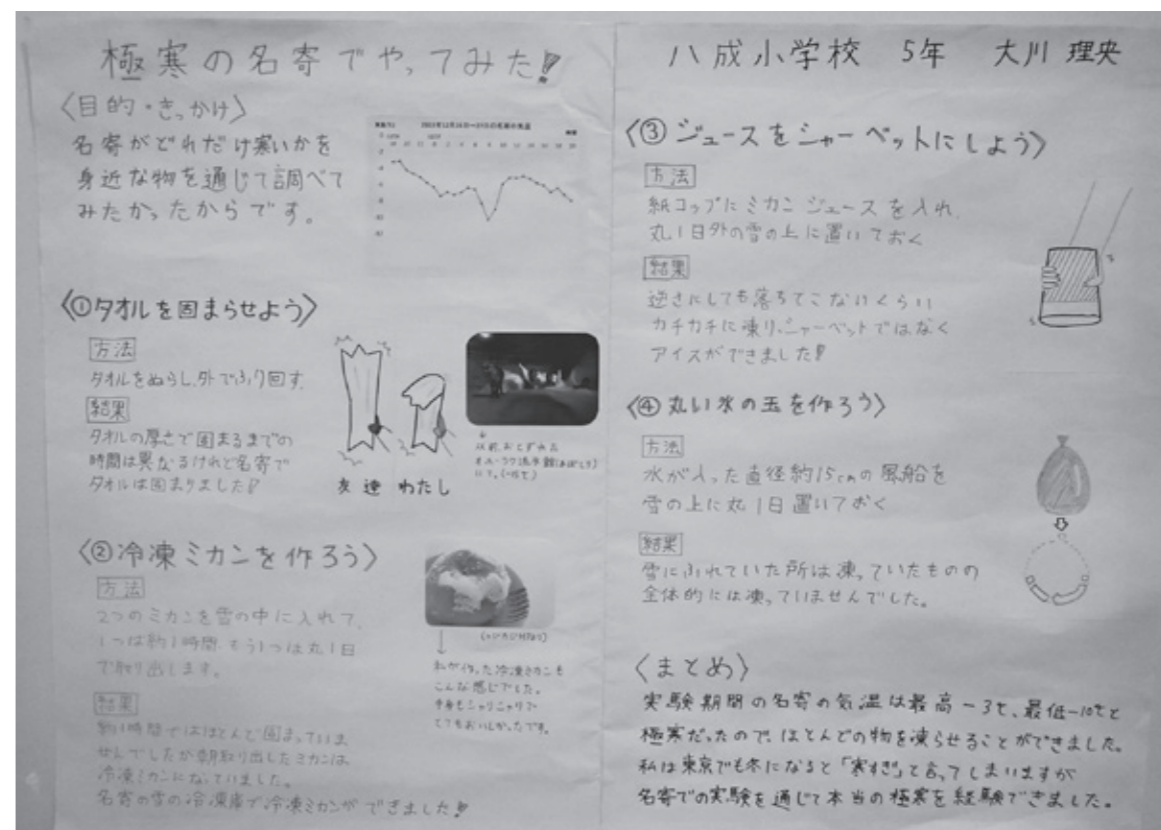 極寒の名寄でやってみた!!
〈目的・きっかけ〉
名寄がどれだけ寒いかを
身近な物を通じて調べて
みたかったからです。
〈①タオルを固まらせよう〉
方法
タオルをぬらし、外でふり回す。
結果
タオルの厚さで固まるまでの
時間は異なるけれど名寄で
タオルは固まりました!!
友達 わたし
以前、おとずれた
オホーツク流氷館(あばしり)
にて。(-15℃)
〈②冷凍ミカンを作ろう〉
方法
2つのミカンを雪の中に入れて、
1つは約1時間、もう1つは丸1日
で取り出します。
結果
約1時間ではほとんど固まっていま
せんでしたが朝取り出したミカンは
冷凍ミカンになっていました。
名寄の雪の冷凍庫で冷凍ミカンができました!!
私が作った冷凍ミカンも
こんな感じでした。
中身もシャリシャリで
とてもおいしかったです。
八成小学校 5年 大川 理央
〈③ジュースをシャーベットにしよう〉
方法
紙コップにミカンジュースを入れ、
丸1日外の雪の上に置いておく
結果
逆さにしても落ちてこないくらい
カチカチに凍り、シャーベットではなく
アイスができました!!
〈④丸い氷の玉を作ろう〉
方法
水が入った直径約15cmの風船を
雪の上に丸1日置いておく
結果
雪にふれていた所は凍っていたものの
全体的には凍っていませんでした。
〈まとめ〉
実験期間の名寄の気温は最高-3℃、最低-10℃と
極寒だったので、ほとんどの物を凍らせることができました。
私は東京でも冬になると「寒すぎ」と言ってしまいますが
名寄での実験を通じて本当の極寒を経験できました。